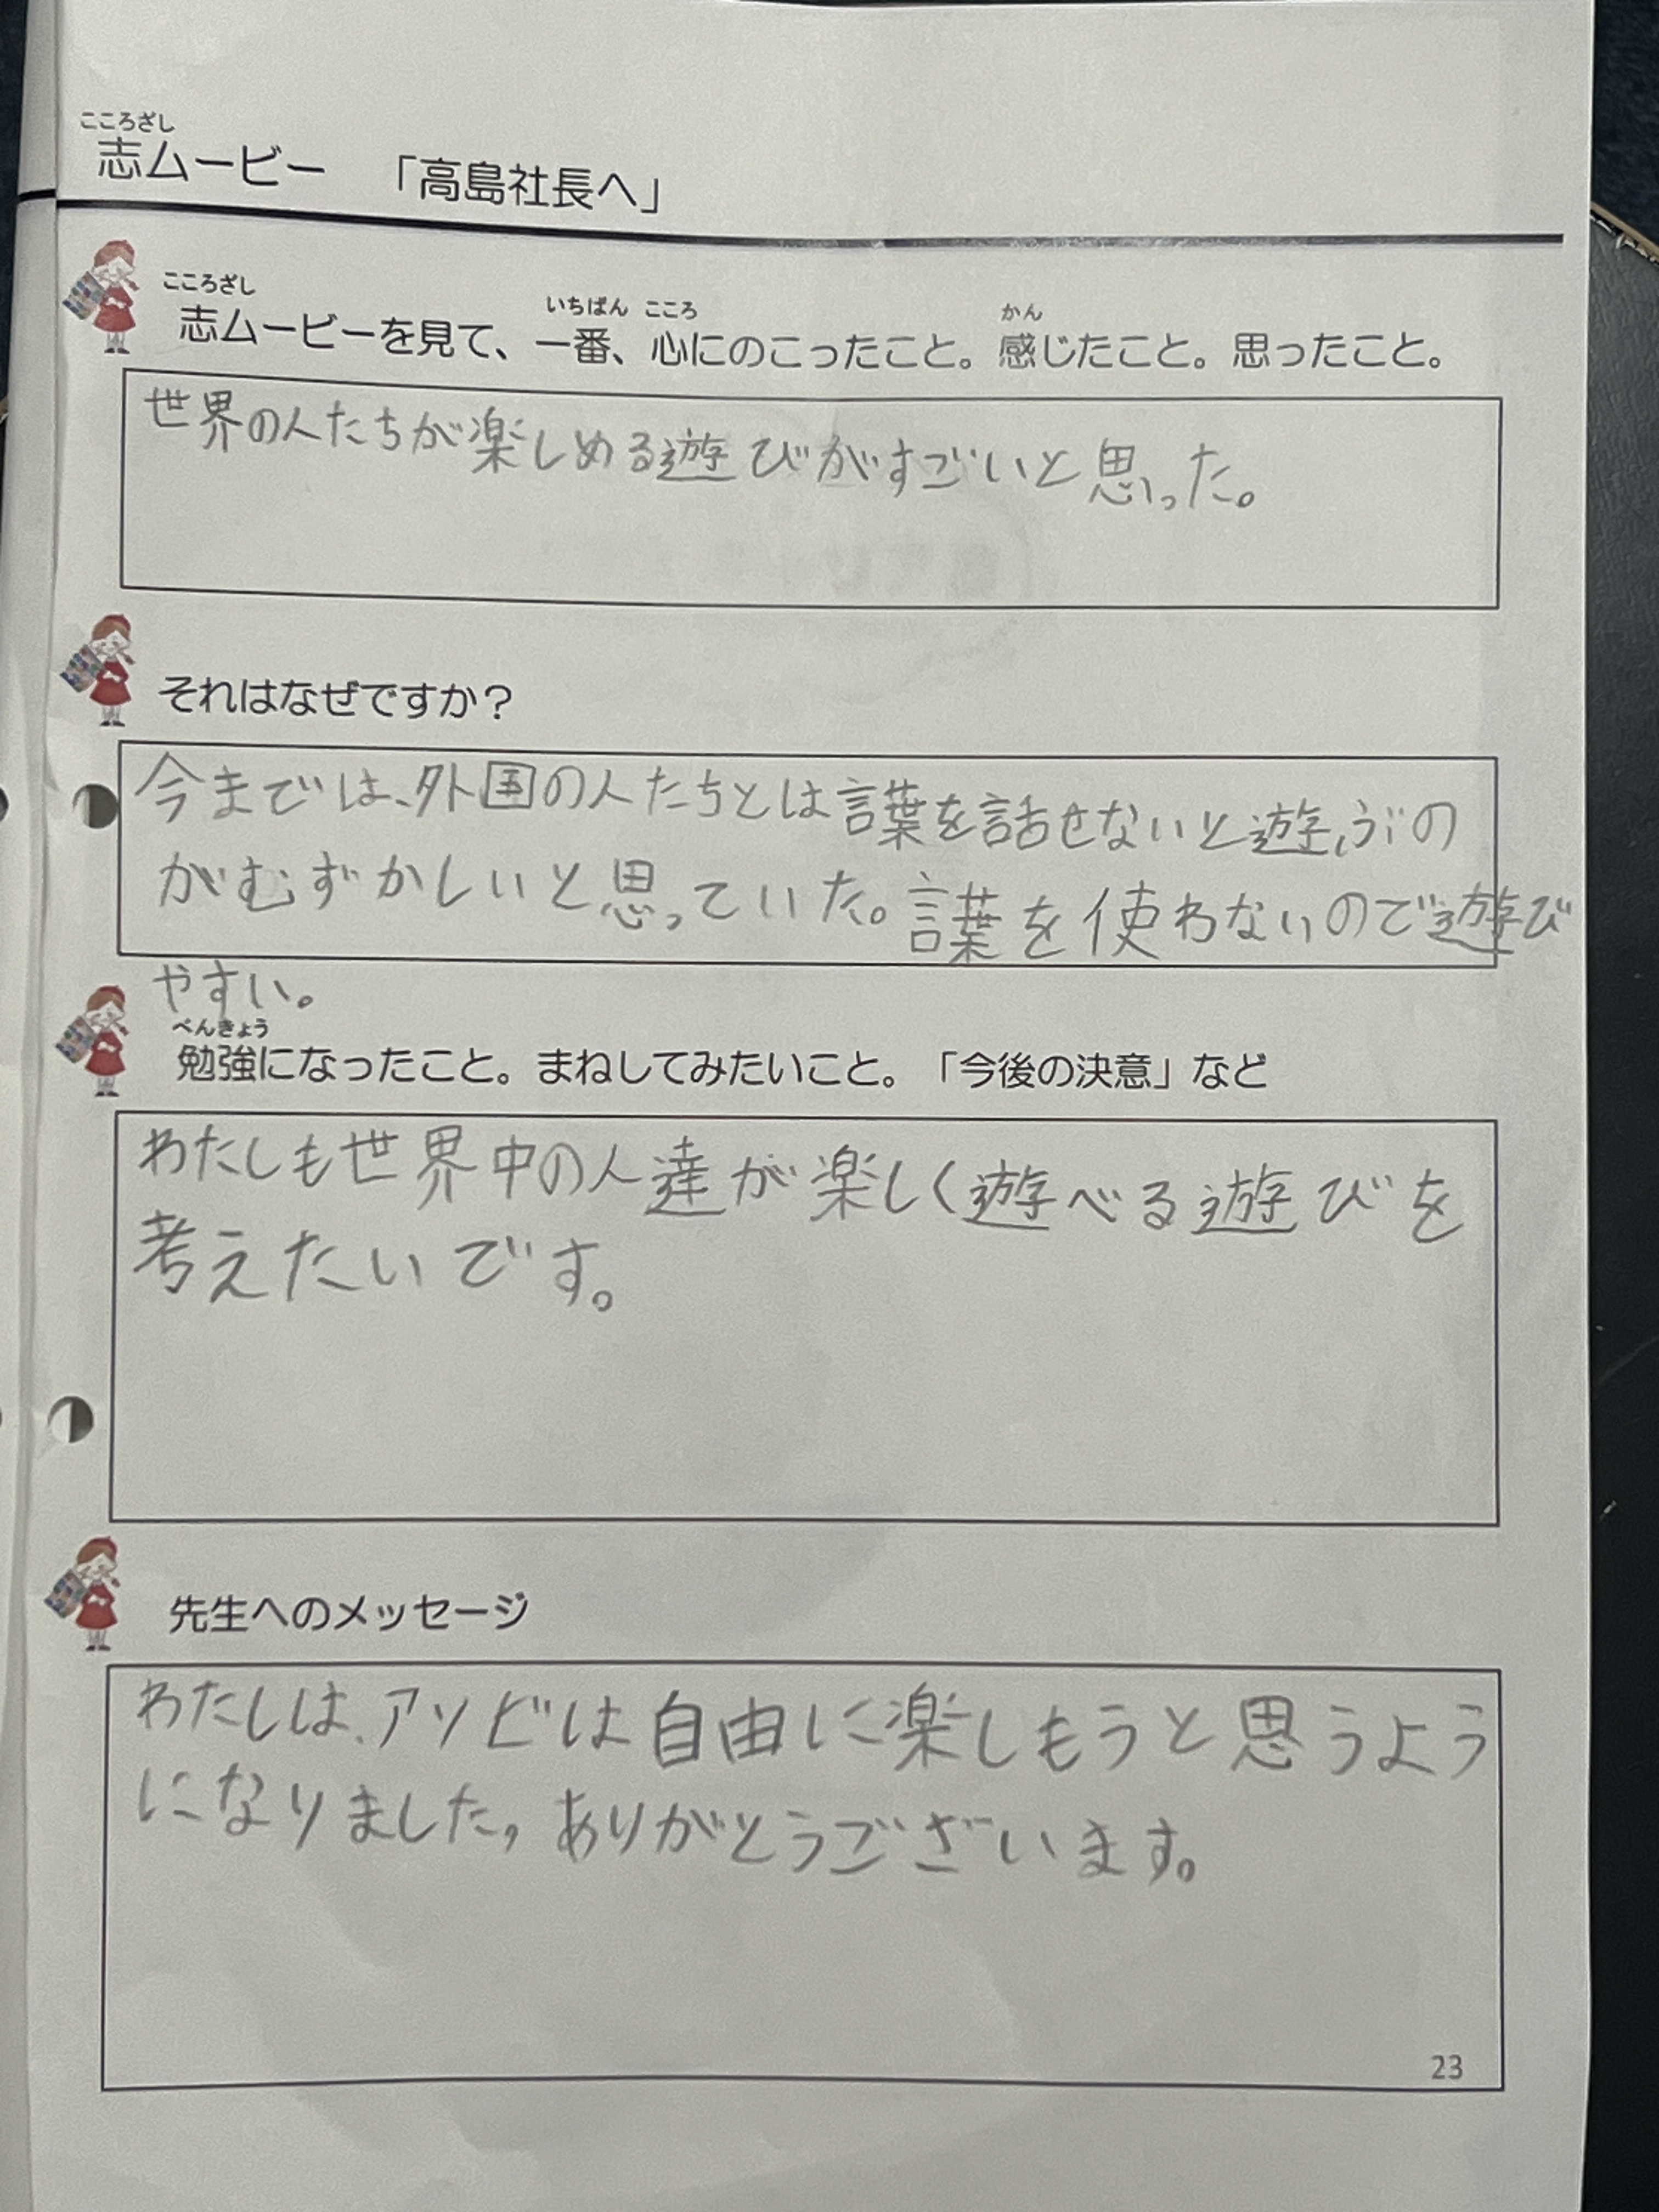 こころざし
志ムービー　「高島社長へ」
こころざし　いちばん　こころ　かん
志ムービーを見て、一番、心にのこったこと。感じたこと。思ったこと。
世界の人たちが楽しめる遊びがすごいと思った。
それはなぜですか？
今までは、外国の人たちとは言葉を話せないと遊ぶの
がむずかしいと思っていた。言葉を使わないので遊び
やすい。
べんきょう
勉強になったこと。まねしてみたいこと。「今後の決意」など
わたしも世界中の人達が楽しく遊べる遊びを
考えたいです。
先生へのメッセージ
わたしは、アソビは自由に楽しもうと思うよう
になりました。ありがとうございます。
23